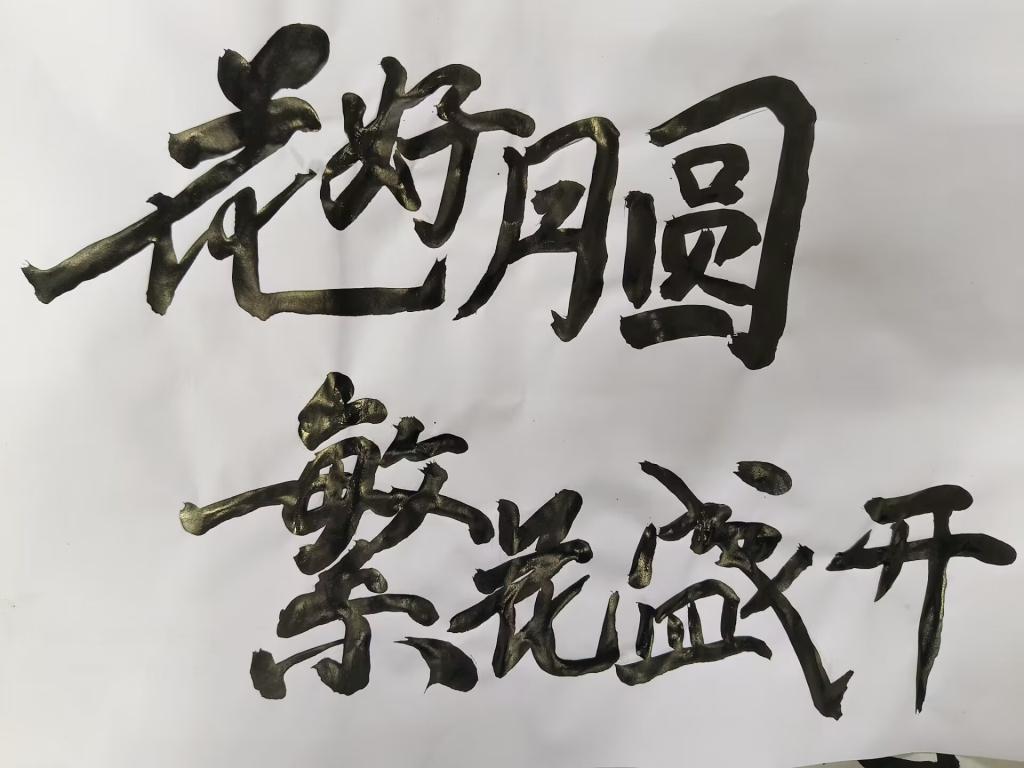 花好月圆
繁花盛开